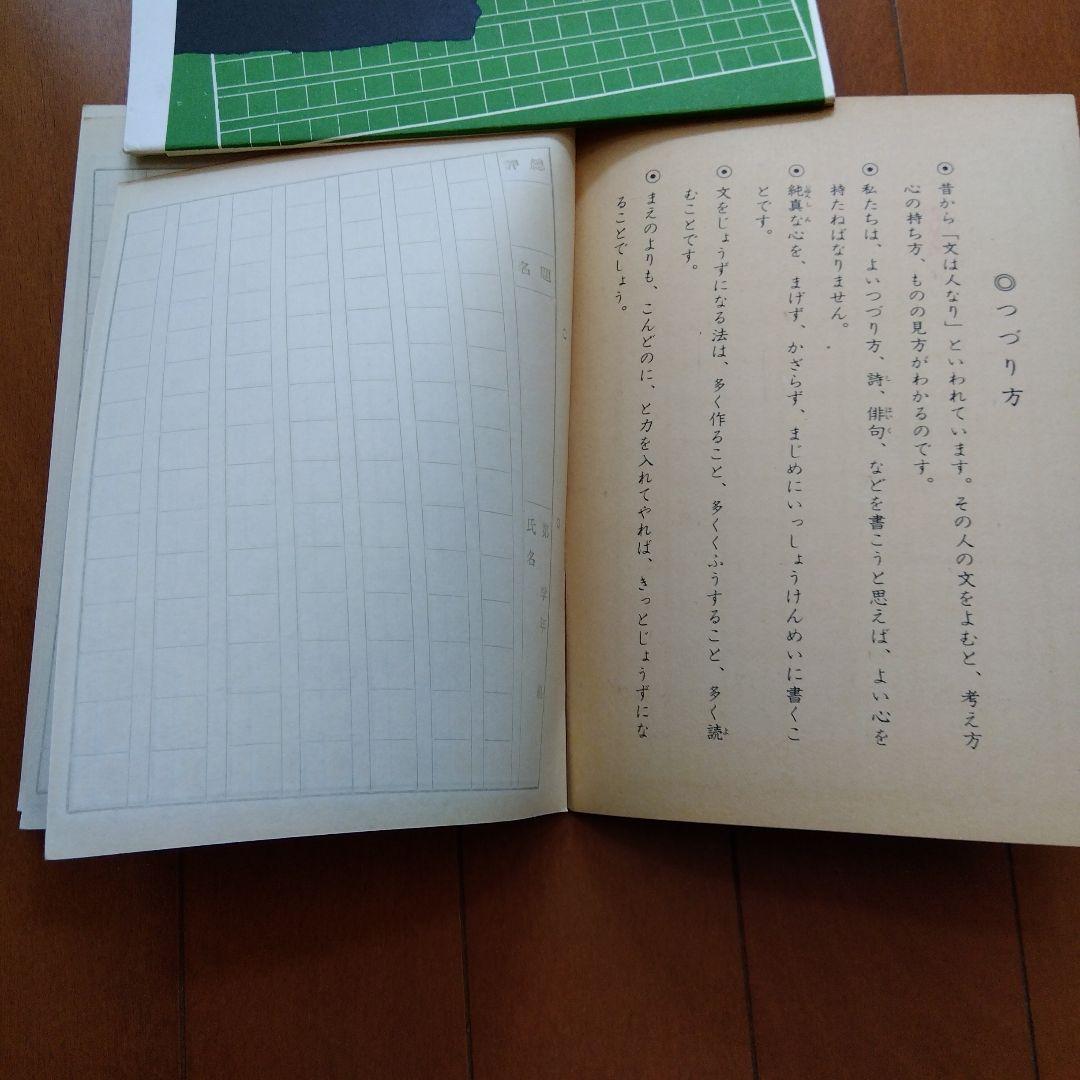 ◎つづり方
⦿昔から「文は人なり」といわれています。その人の文をよむと、考え方
心の持ち方、ものの見方がわかるのです。
⦿私たちは、よいつづり方、詩、俳句、などを書こうと思えば、よい心を
持たねばなりません。
⦿純真な心を、まげず、かざらず、まじめにいっしょうけんめいに書くこ
とです。
⦿文をじょうずになる法は、多く作ること、多くくふうすること、多く読
むことです。
⦿まえのよりも、こんどのに、と力を入れてやれば、きっとじょうずにな
ることでしょう。
総評
題名
第 学年 組
氏名